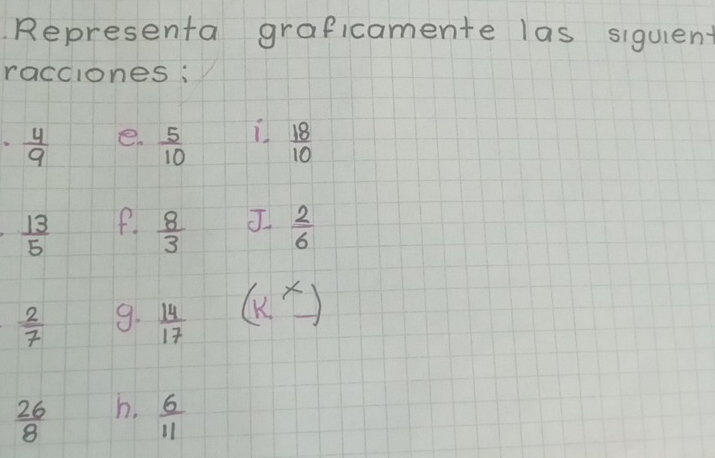 Representa graficamente las siguient
racciones:
. 4/9 e. 5/10 i. 18/10
. 13/5 f. 8/3 J. 2/6
. 2/7 g. 14/17 (K. x/)
26/8 h. 6/11